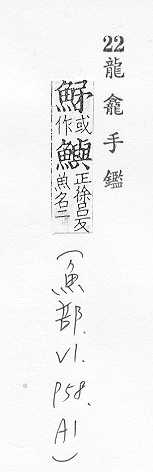 22 龍龕手鑑
魣或作鱮正徐呂反魚名二
(魚部. VI. p58. A1)